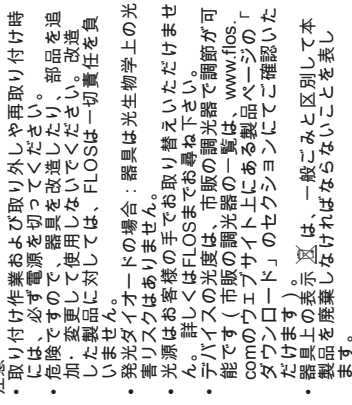 注意
・取り付け作業および取り外しや再取り付け時
には、必ず電源を切ってください。
・危険ですので、器具を改造したり、部品を追
加・変更して使用しないでください。改造
した製品に対しては、FLOSは一切責任を負
いません。
・発光ダイオードの場合：器具は光生物学上の光
害リスクはありません。
・光源はお客様の手でお取り替えいただけませ
ん。詳しくはFLOSまでお尋ね下さい。
・デバイスの光度は、市販の調光器で調節が可
能です（市販の調光器の一覧は、www.flos.
comのウェブサイト上にある製品ページの「
ダウンロード」のセクションにてご確認いた
だけます）。
・器具上の表示 は、一般ごみと区別して本
製品を廃棄しなければならないことを表し
ます。